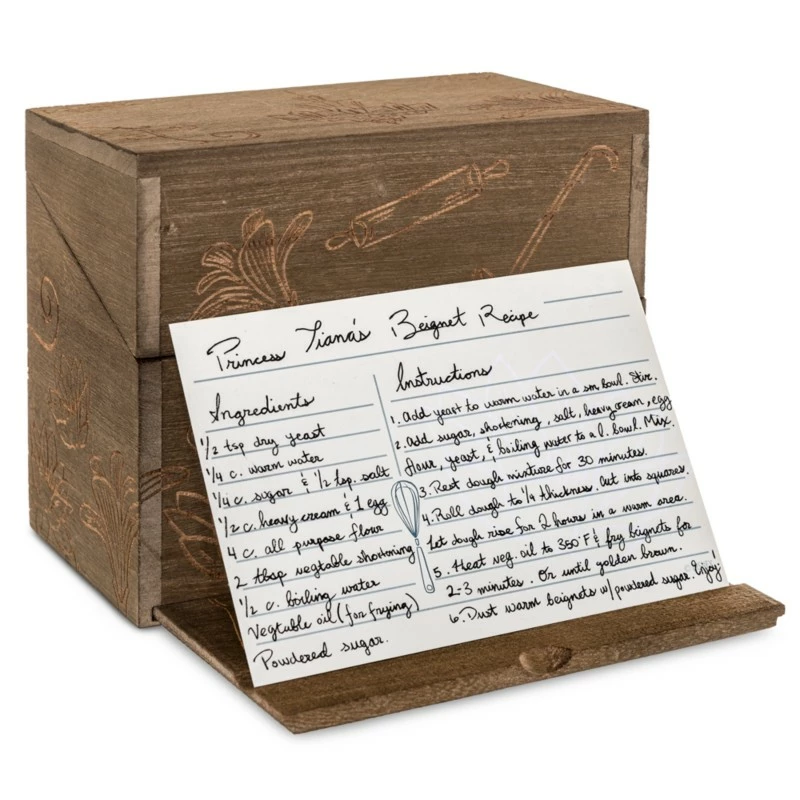 Princess Tiana's Beignet Recipe
Ingredients
1/2 tsp dry yeast
1/4 c. warm water
1/4 c. sugar & 1/2 tsp. salt
1/2 c. heavy cream & 1 egg
4 c. all purpose flour
2 tbsp vegtable shortening
1/2 c. boiling water
Vegtable oil (for frying)
Powdered sugar.
Instructions
1. Add yeast to warm water in a sm. bowl. Stir.
2. Add sugar, shortening, salt, heavy cream, egg
flour, yeast, & boiling water to a l. bowl. Mix.
3. Rest dough mixture for 30 minutes.
4. Roll dough to 1/4 thickness. Cut into squares.
Let dough rise for 2 hours in a warm area.
5. Heat veg. oil to 350°F & fry beignets for
2-3 minutes. Or until golden brown.
6. Dust warm beignets w/powdered sugar. Enjoy!